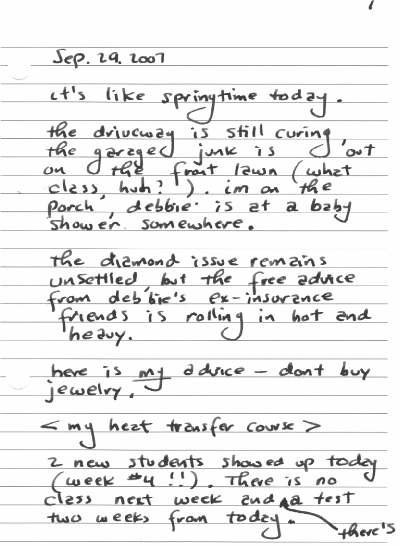 1
Sep. 29. 2007
it's like springtime today.
the driveway is still curing,
the garaged junk is out
on the front lawn (what
class, huh?). im on the
porch, debbie is at a baby
shower somewhere.
the diamond issue remains
unsettled, but the free advice
from debbie's ex-insurance
friends is rolling in hot and
heavy.
here is my advice – dont buy
jewelry.
< my heat transfer course >
2 new students showed up today
(week #4 !!). There is no
class next week and a test
two weeks from today.
there's